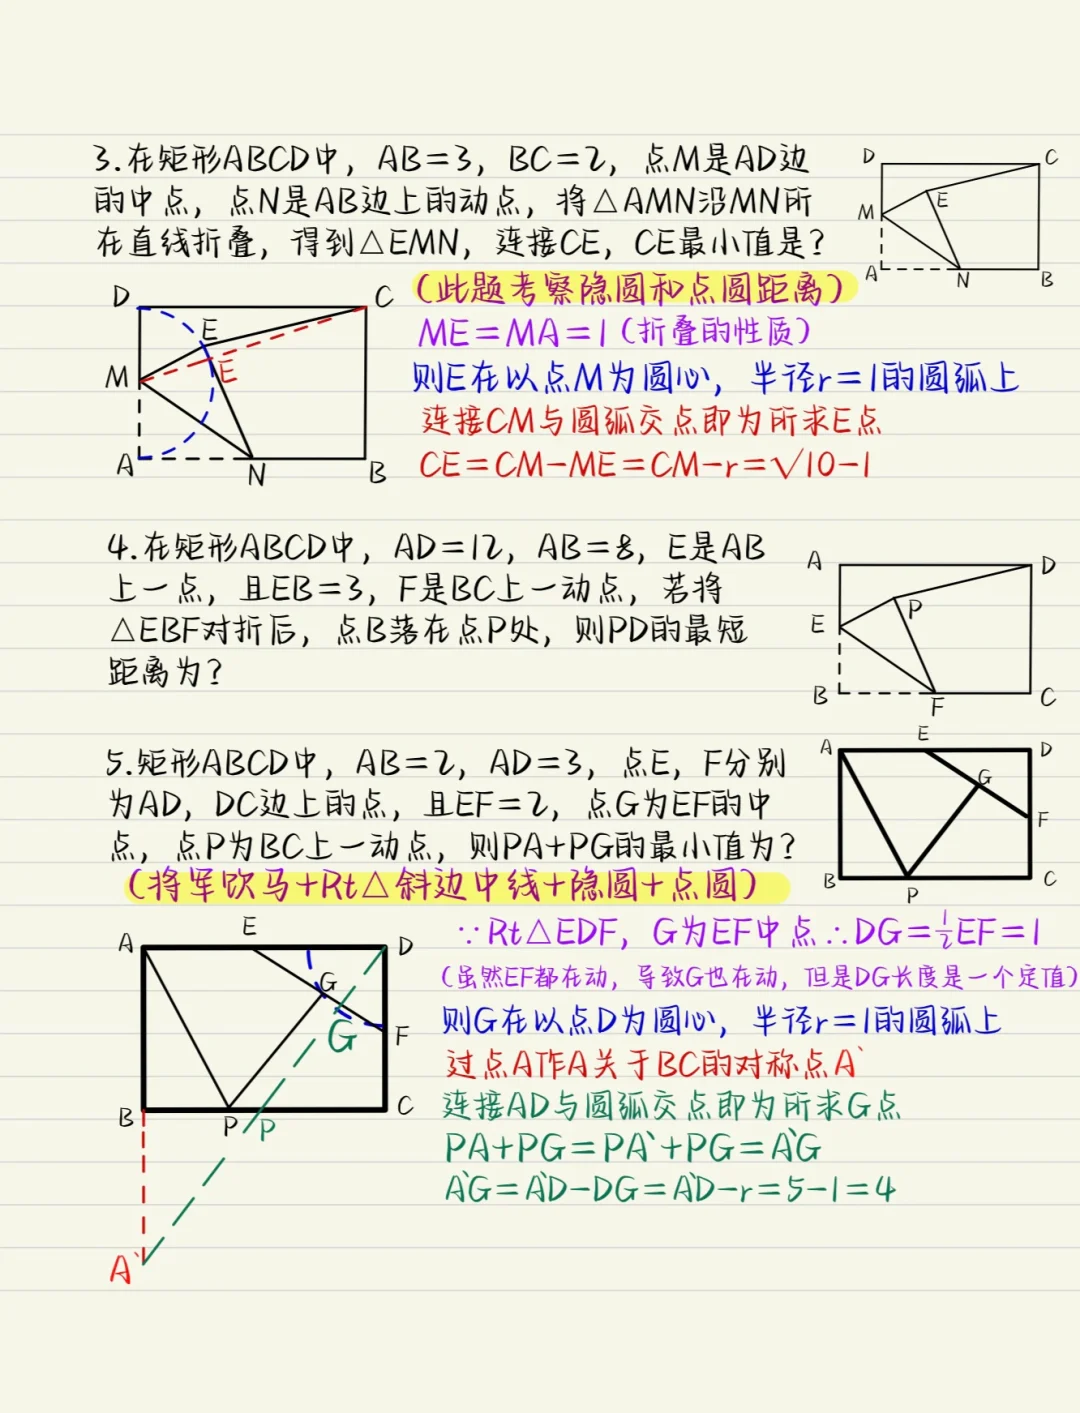 3.在矩形ABCD中，AB=3，BC=2，点M是AD边
的中点，点N是AB边上的动点，将△AMN沿MN所
在直线折叠，得到△EMN，连接CE，CE最小值是？
D
C
M
E
A
N
B
(此题考察隐圆和点圆距离)
ME=MA=1(折叠的性质)
则E在以点M为圆心，半径r=1的圆弧上
连接CM与圆弧交点即为所求E点
CE=CM-ME=CM-r=√10-1
D
C
E
E
M
A
N
B
4.在矩形ABCD中，AD=12，AB=8，E是AB
上一点，且EB=3，F是BC上一动点，若将
△EBF对折后，点B落在点P处，则PD的最短
距离为？
A
D
P
E
B
F
C
5.矩形ABCD中，AB=2，AD=3，点E，F分别
为AD，DC边上的点，且EF=2，点G为EF的中
点，点P为BC上一动点，则PA+PG的最小值为？
(将军饮马+Rt△斜边中线+隐圆+点圆)
A
E
D
G
F
B
P
C
A
E
D
G
G
F
B
P
P
C
A`
∵Rt△EDF，G为EF中点∴DG=½EF=1
(虽然EF都在动，导致G也在动，但是DG长度是一个定值)
则G在以点D为圆心，半径r=1的圆弧上
过点A作A关于BC的对称点A`
连接AD与圆弧交点即为所求G点
PA+PG=PA`+PG=A`G
A`G=A`D-DG=A`D-r=5-1=4